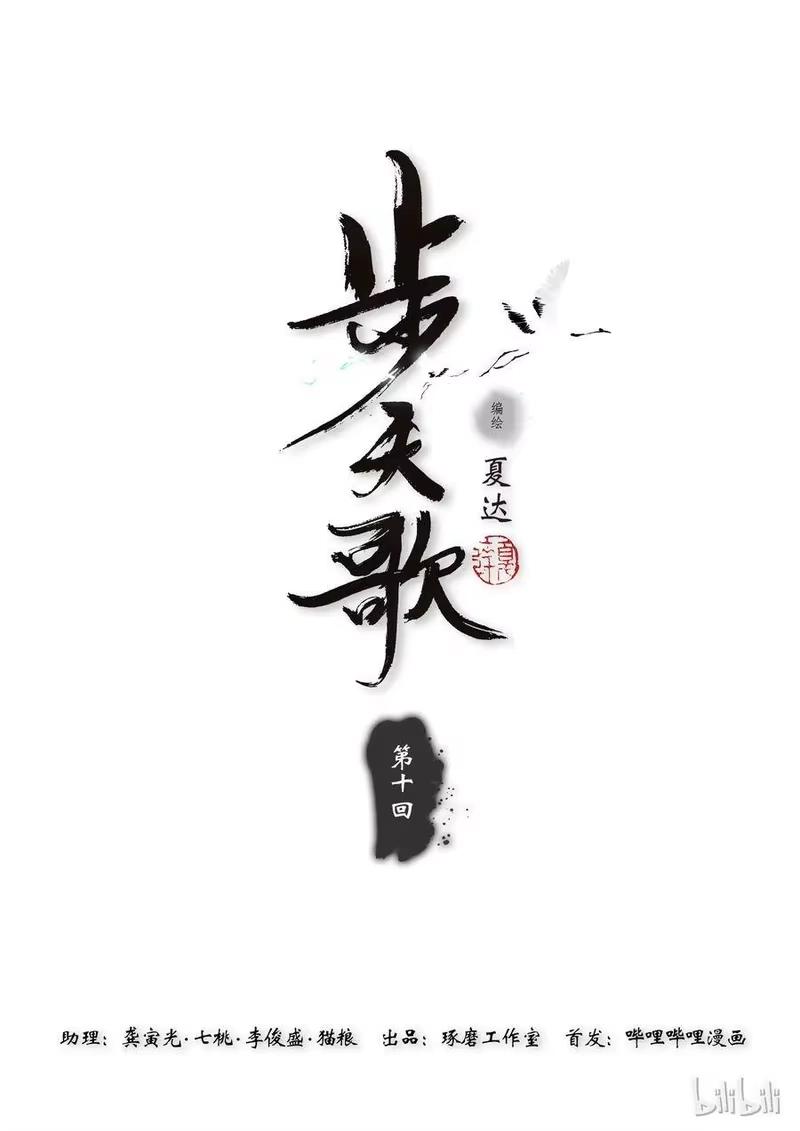 步天歌
编绘
夏达
夏达
第十回
助理：龚寅光·七桃·李俊盛·猫粮 出品：琢磨工作室 首发：哔哩哔哩漫画
bilibili